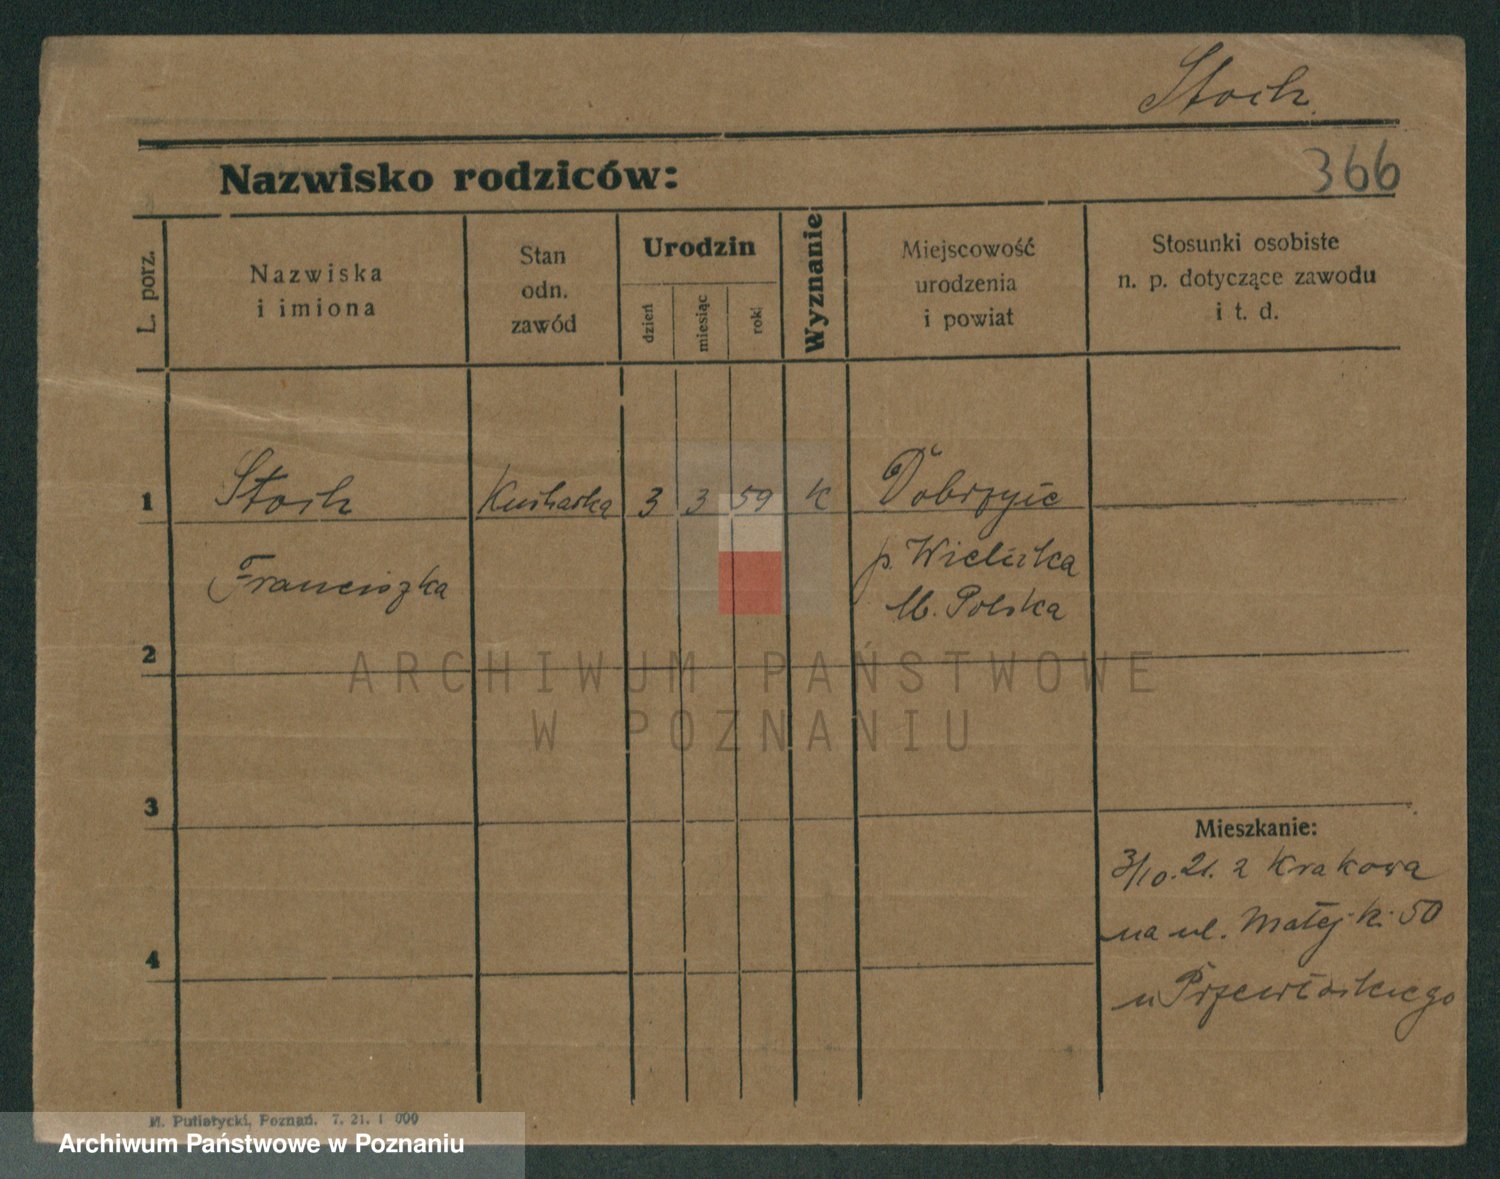 Stoch
Nazwisko rodziców:
366
L. porz.
Nazwiska
i imiona
Stan
odn.
zawód
Urodzin
dzień
miesiąc
rok
Wyznanie
Miejscowość
urodzenia
i powiat
Stosunki osobiste
n. p. dotyczące zawodu
i t. d.
1
Stoch
Kucharka
3
3
59
K
Dobrzyic
Franciszka
p. Wieliczka
M. Polska
2
ARCHIWUM PAŃSTWOWE
W POZNANIU
3
Mieszkanie:
3/10. 21. z Krakowa
na ul. Matejk. 50
u
4
M. Putiatycki, Poznań. 7. 21. 1 000
Archiwum Państwowe w Poznaniu